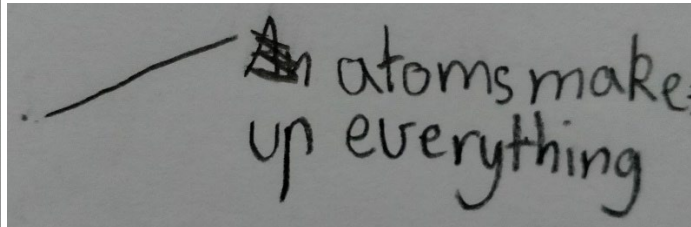 atoms make
up everything